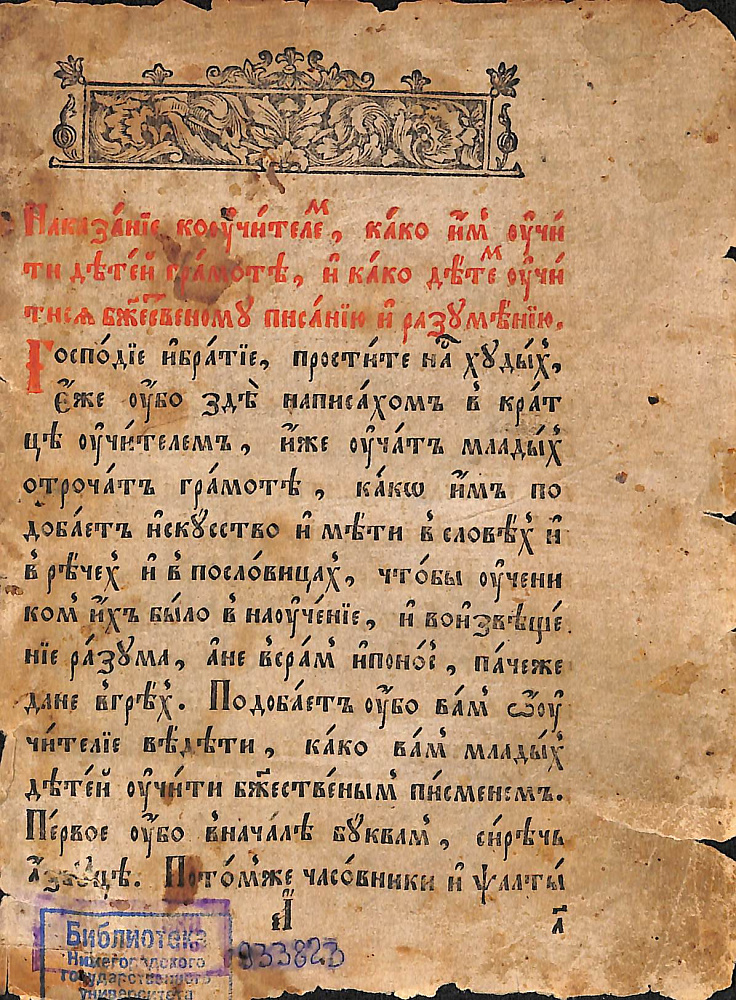 Наказа́нїе коѹ҆чи́телеⷨ, ка́ко и҆̀мъ ѹ҆чи́
ти дѣте́й гра́мотѣ, и҆ ка́ко дѣ́теⷨ ѹ҆чи́
тисѧ бж҃е́сⷭ҇веному писа́нїю и҆ разумѣ́нїю.
Господі́е и҆бра́тїе, прости́те на̀ худы́х̾,
є҆́же ѹ҆́бо здѣ̀ написа́хомъ в̾ кра́т
цѣ ѹ҆чи́телемъ, и҆́же ѹ҆ча́тъ млады́х̾
отроча́тъ гра́мотѣ, ка́кѡ и҆̀мъ по
доба́етъ и҆ску́сство и҆ мѣ́ти в̾ словѣ́х̾ и҆
в̾ рѣ́чех̾ и҆ в̾ посло́вицах̾, что́бы ѹ҆чени
ком̾ и҆́хъ бы́ло в̾ наѹ҆че́нїе, и҆ вои҆звѣще́
нїе ра́зума, а҆не в̾сра́м̾ и҆поно́с̾, па́чеже
дане в̾грѣ́х̾. Подоба́етъ ѹ҆́бо ва́м̾ ѽѹ҆
чи́телїе вѣ́дѣти, ка́ко ва́м̾ млады́х̾
дѣте́й ѹ҆чи́ти бж҃естве́ным̾ пи́сменемъ.
Пе́рвое ѹ҆́бо в̾нача́лѣ бу́квам̾, си́рѣчь
а҆́збуцѣ. Пото́м̾же часо́вники и҆ ѱалты́
а҃і
а҃
Библиотека
Нижегородского
государственного
университета
933823